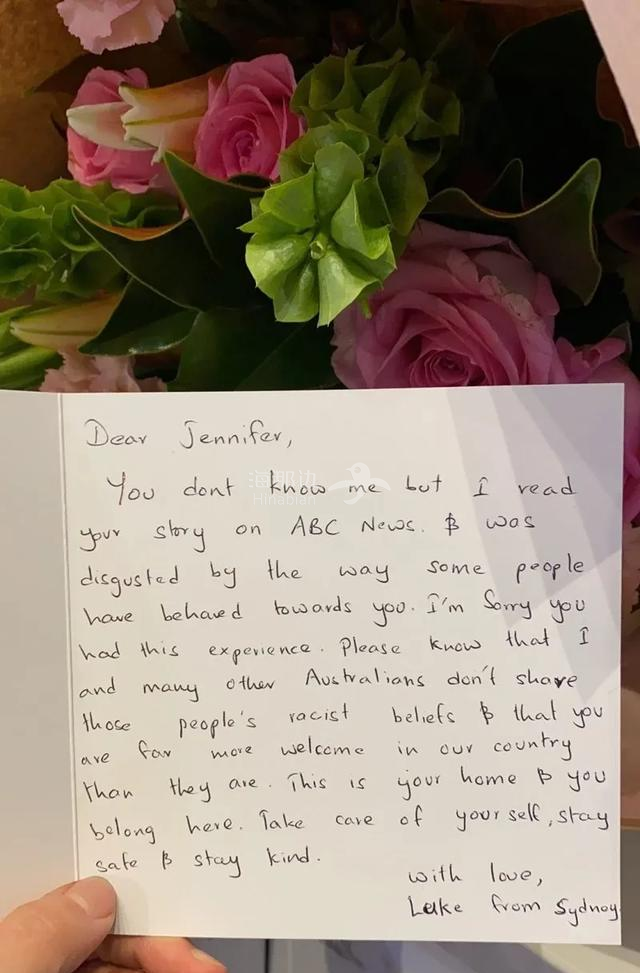 Dear Jennifer,
You dont know me but I read
your story on ABC News. & was
disgusted by the way some people
have behaved towards you. I'm Sorry you
had this experience. Please know that I
and many other Australians don't share
those people's racist beliefs & that you
are far more welcome in our country
than they are. This is your home & you
belong here. Take care of yourself, stay
safe & stay kind.
with love,
Luke from Sydney
海那边
Hinabian